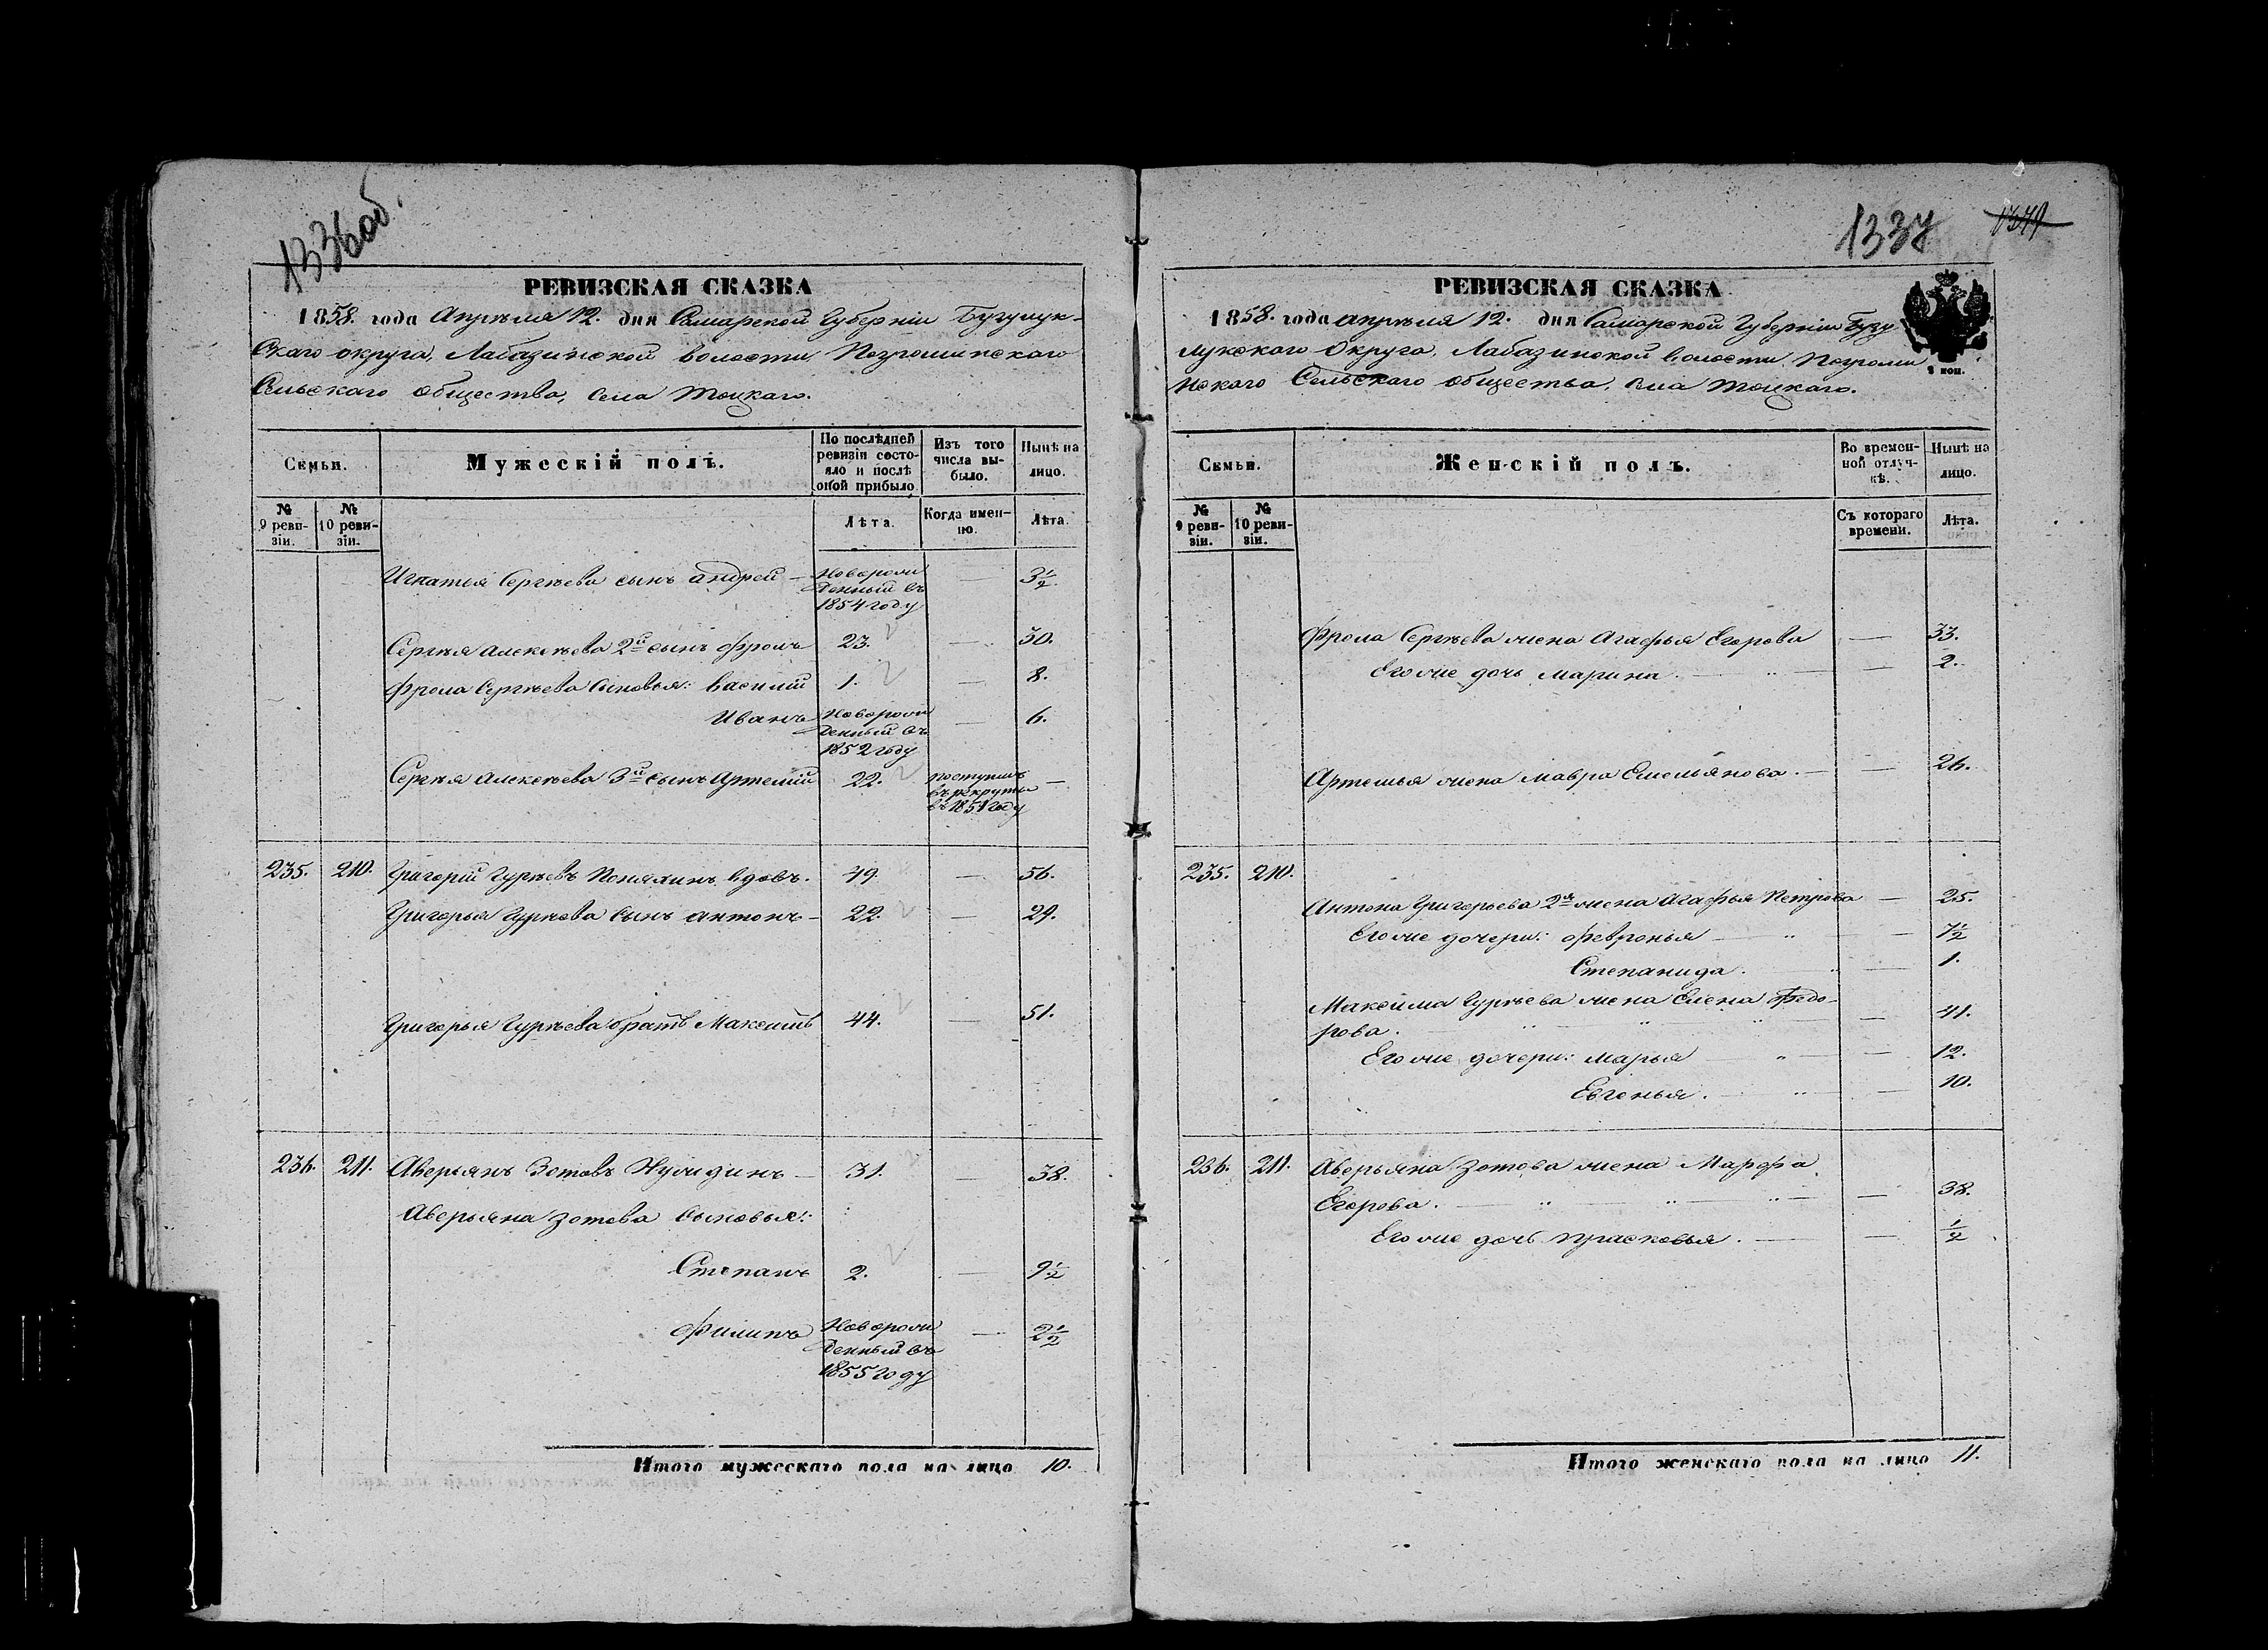 1336об.
РЕВИЗСКАЯ СКАЗКА
1858. года Апрѣля 12. дня Самарской Губерніи Бузулук-
скаго округа, Лабазинской волости Погроминскаго
Сельскаго общества, села Тоцкаго.
Семьи.
Мужескій полъ.
По послѣдней ревизіи состояло и послѣ оной прибыло
Изъ того числа выбыло.
Нынѣ на лицо.
№ 9 ревизіи.
№ 10 ревизіи.
Лѣта.
Когда именно.
Лѣта.
Игнатья Сергѣева сынъ Андрей — Новорож 3½.
денный въ
1854 году
Сергѣя Алексѣева 2й сынъ Фролъ 23. — 30.
Фрола Сергѣева сыновья: Василій 1. — 8.
Иванъ Новорож — 6.
денный въ
1852 году
Сергѣя Алексѣева 3й сынъ Артемій 22. поступилъ —
въ рекруты
въ 1854 году
235. 210. Григорій Гурѣевъ вдовъ. 49. — 56.
Григорья Гурѣева сынъ Антонъ — 22. — 29.
Григорья Гурѣева братъ Максимъ 44. — 51.
236. 211. Аверьянъ Зотовъ — 31. — 38.
Аверьяна Зотова сыновья:
Степанъ 2. — 9½
Филипъ Новорож — 2½
денный въ
1855 году
Итого мужескаго пола на лицо 10.
1337 1379
РЕВИЗСКАЯ СКАЗКА
1858. года апрѣля 12. дня Самарской Губерніи Бузу
лукскаго Округа, Лабазинской волости, Погроми
нскаго Сельскаго общества, села Тоцкаго.
Семьи.
Женскій полъ.
Во временной отлучкѣ.
Нынѣ на лицо.
№ 9 ревизіи.
№ 10 ревизіи.
Съ котораго времени.
Лѣта.
Фрола Сергѣева жена Агафья Егорова — 33.
Его же дочь Марина. — 2.
Артемья жена Мавра Емельянова. — 26.
235. 210.
Антона Григорьева 2я жена Агафья Петрова — 25.
Его же дочери: Февронья — 7½
Степанида. — 1.
Максима Гурѣева жена Елена Федо-
рова. — 41.
Его же дочери: Марья — 12.
Евгенья. — 10.
236. 211. Аверьяна Зотова жена Марфа
Егорова. — 38.
Его же дочь Прасковья. — ½
Итого женскаго пола на лицо 11.